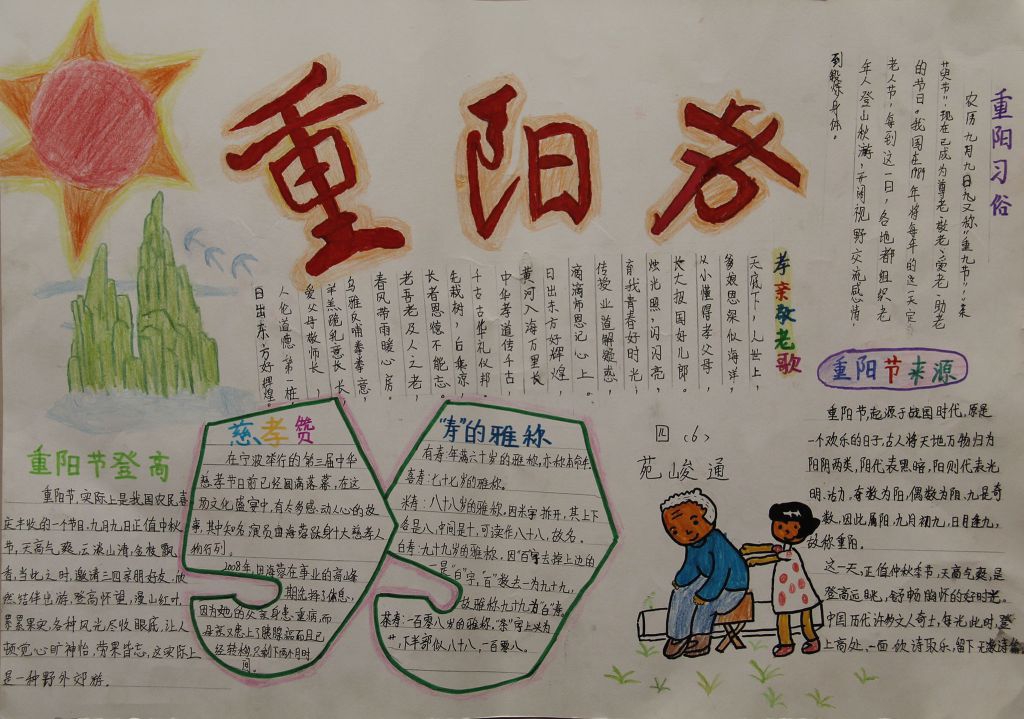 重阳节
重阳习俗
农历九月九日九又称“重九节”、“来
萸节”，现在已成为尊老、敬老、爱老、助老
的节日。我国在1989年将每年的这一天定
老人节，每到这一日，各地都组织老
年人登山秋游，开阔视野交流感情，
到锻炼身体。
孝亲敬老歌
天底下，人世上，
爹娘恩深似海洋，
从小懂得孝父母，
长大报国好儿郎。
烛光照，闪闪亮，
育我青春好时光；
传授业道解疑惑，
滴滴师恩记心上。
日出东方好辉煌，
黄河入海万里长
中华孝道传千古，
千古古华礼仪邦。
先栽树，后乘凉，
长者恩惠不能忘。
老吾老及人之老，
春风带雨暖心房。
乌雅反哺拳拳意，
羊羔跪乳意长长，
爱父母敬师长，
人伦道德第一桩，
日出东方好辉煌。
重阳节来源
重阳节，起源于战国时代，原是
一个欢乐的日子，古人将天地万物归为
阳阴两类，阴代表黑暗，阳则代表光
明、活力，奇数为阳，偶数为阴。九是奇
数，因此属阳，九月初九，日月逢九，
故称重阳。
这一天，正值仲秋季节，天高气爽，是
登高远眺，舒畅胸怀的好时光。
中国历代许多文人奇士，每光此时，登
上高处，一面饮诗取乐，留下无数诗篇
四（6）
苑峻通
重阳节登高
重阳节，实际上是我国农民喜
定丰收的一个节日，九月九日正值中秋
节，天高气爽，云淡山清，金桂飘
香，当此之时，邀请三四亲朋好友，欣
然结伴出游，登高怀望，漫山红叶，
累累果实，各种风光尽收眼底，让人
顿觉心旷神怡，劳累皆忘，这实际上
是一种野外郊游。
慈孝赞
在宁波举行的第三届中华
慈孝节日前已经圆满落幕，在这
场文化盛宴中，有太多感动人心的故
事，其中知名演员由海蓉跻身十大慈孝人
物行列。
2008年，田海蓉在事业的高峰
期选择了休息，
因为她的父亲身患重病，而
母亲又患上了胰腺癌而且已
经转移，只剩下两个月时
间。
“寿”的雅称
有寿年满六十岁的雅称，亦称本命年
喜寿：七十七岁的雅称。
米寿：八十八岁的雅称，因米字拆开，其上下
各是八，中间是十，可读作八十八，故名。
白寿：九十九岁的雅称，因“百”字去掉上边的
一是“白”字，“百”数去一为九十九，
故雅称九十九为“白”寿
茶寿：一百零八岁的雅称，“茶”字上头为
廿，下半部似八十八，一百零八。